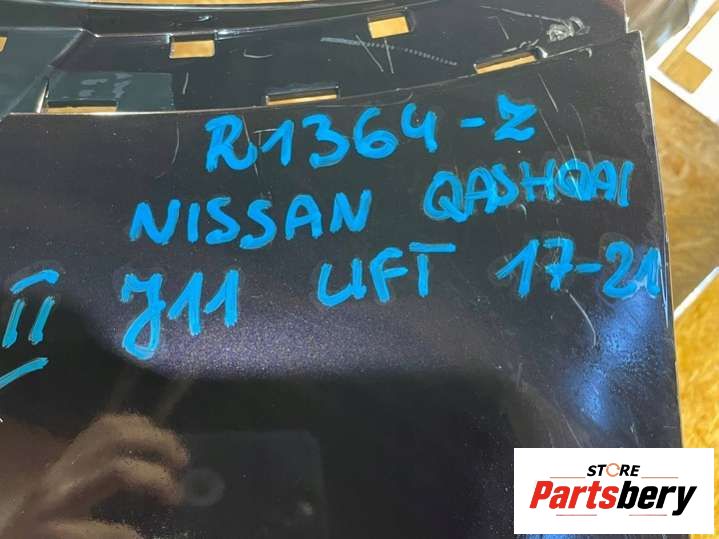 R1364-Z
NISSAN QASHQAI
II J11 LIFT 17-21
STORE
Partsbery